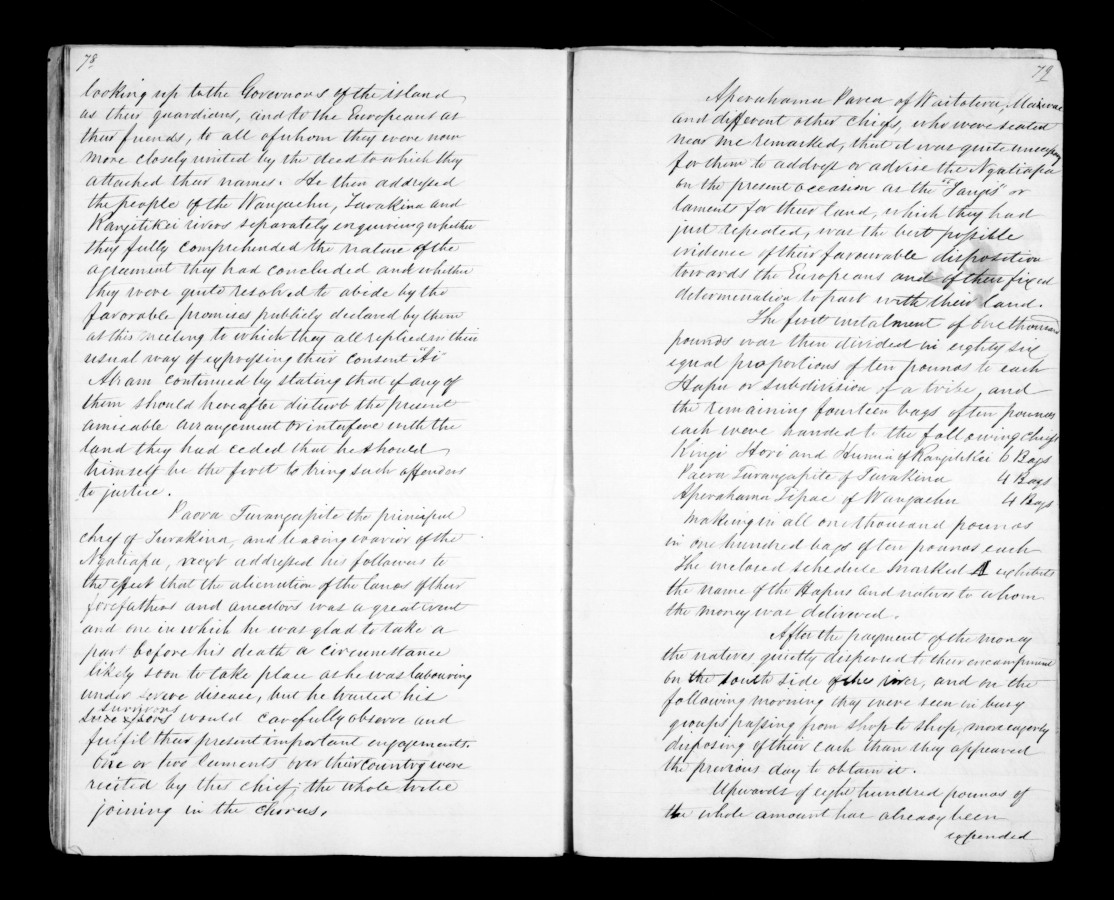 78
looking up to the Governors of the island
as their guardians, and to the Europeans as
their friends, to all of whom they were now
more closely united by the deed to which they
attached their names. He then addressed
the people of the Wangaehu, Turakina and
Rangitikei rivers separately enquiring whether
they fully comprehended the nature of the
agreement they had concluded and whether
they were quite resolved to abide by the
favorable promises publicly declared by them
at this meeting to which they all replied in their
usual way of expressing their consent "Ai"
Abram continued by stating that if any of
them should hereafter disturb the present
amicable arrangement or interfere with the
land they had ceded that he should
himself be the first to bring such offenders
to justice.
Paora Turangapito the principal
chief of Turakina, and leading warior of the
Ngatiapa, next addressed his followers to
the effect that the alienation of the lands of their
forefathers and ancestors was a great event
and one in which he was glad to take a
part before his death a circumstance
likely soon to take place as he was labouring
under severe disease, but he wanted his
survivors
would carefully observe and
fulfil their present important engagements.
One or two laments over their country were
recited by this chief; the whole tribe
joining in the chorus.
79
Aperahama Parea of Waitotara, Maxwell
and different other chiefs, who were seated
near me remarked, that it was quite unnecessary
for them to address or advise the Ngatiapa
on the present occasion as the "Tangis" or
laments for their land, which they had
just repeated, was the best possible
evidence of their favourable disposition
towards the Europeans and of their fixed
determination to part with their land.
The first instalment of One thousand
pounds was then divided in eighty six
equal proportions of ten pounds to each
Hapu or subdivision of a tribe, and
the remaining fourteen bags of ten pounds
each were handed to the following chiefs
Kingi Hori and Hunia of Rangitikei 6 Bags
Paora Turangapito of Turakina 4 Bags
Aperahama Tipae of Wangaehu 4 Bags
Making in all one thousand pounds
in one hundred bags of ten pounds each
The inclosed schedule marked A exhibits
the name of the Hapus and natives to whom
the money was delivered.
After the payment of the money
the natives quietly dispersed to their encampment
on the south side of the river, and on the
following morning they were seen in busy
groups passing from shop to shop, more eagerly
disposing of their cash than they appeared
the previous day to obtain it.
Upwards of eight hundred pounds of
the whole amount has already been
expended